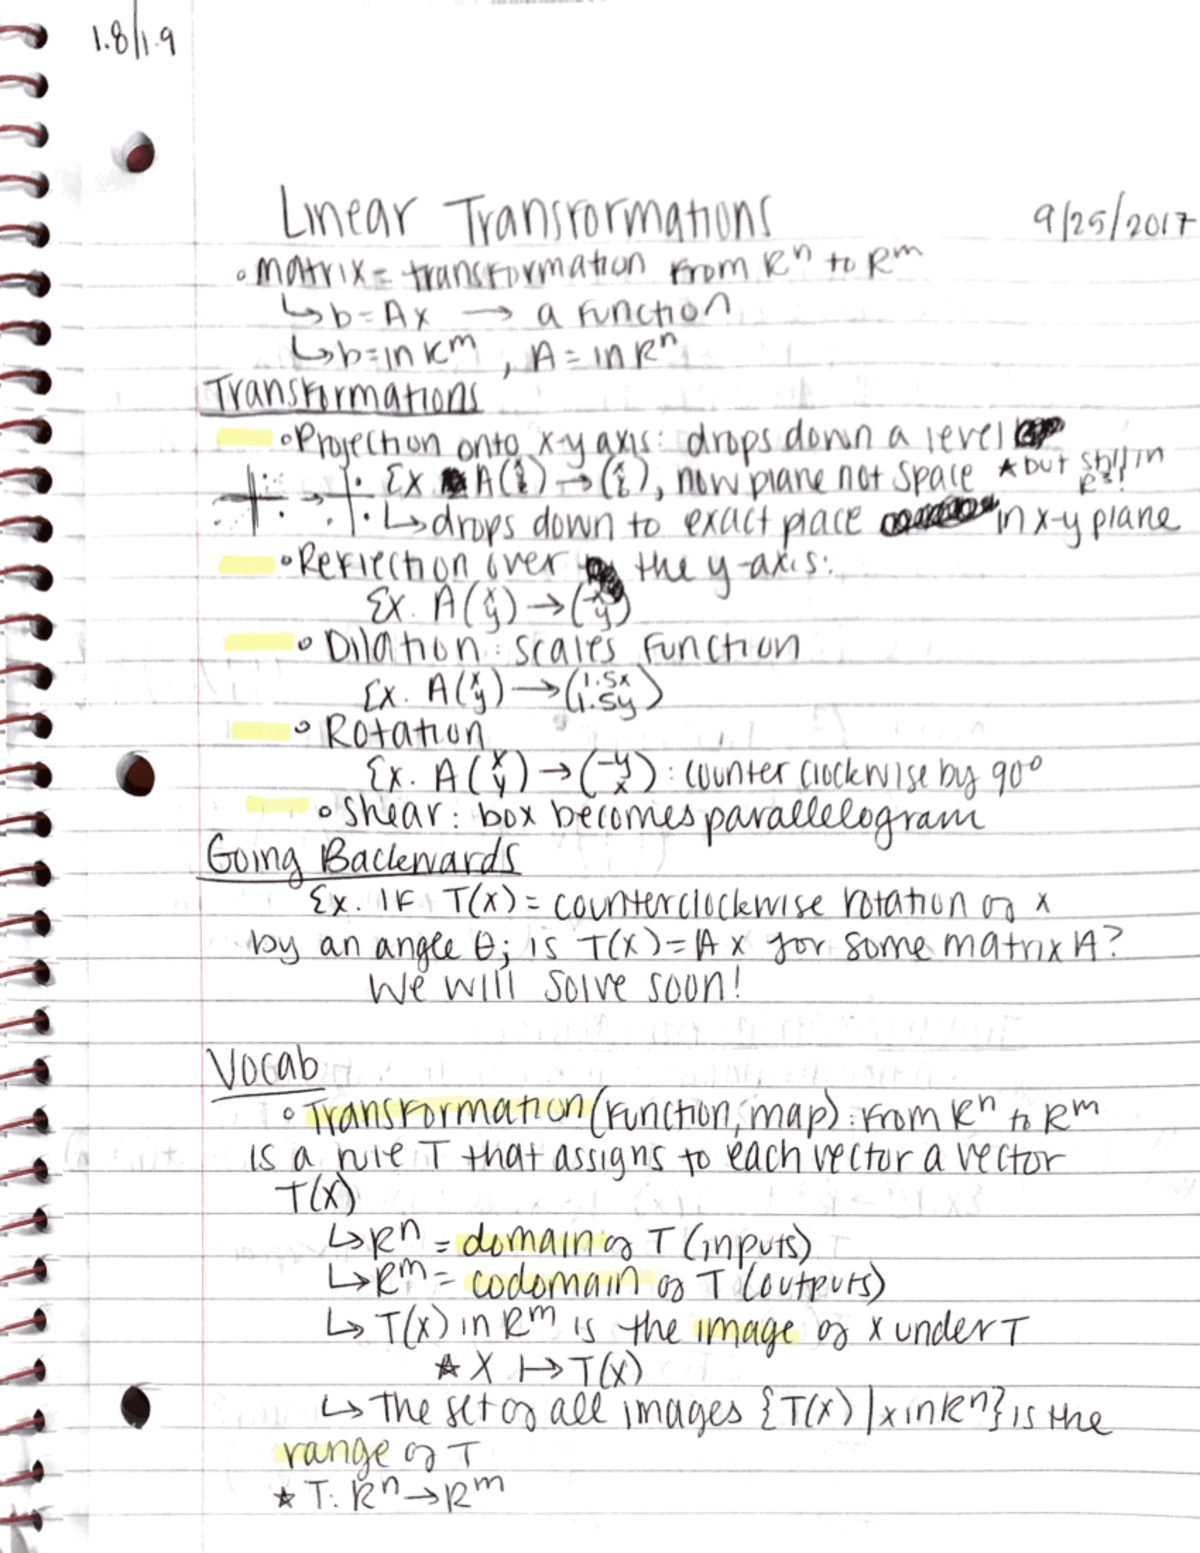 1.8/1.9
Linear Transformations
9/25/2017
◦ matrix = transformation from Rⁿ to Rᵐ
↳ b = Ax → a function
↳ b = in Rᵐ, A = in Rⁿ
Transformations
◦ Projection onto x-y axis: drops down a level
Ex A( ) → ( ), now plane not space ★ but still in R³!
↳ drops down to exact place in x-y plane
◦ Reflection over the y-axis:
Ex. A(x y) → (-x y)
◦ Dilation: scales function
Ex. A(x y) → (1.5x 1.5y)
◦ Rotation
Ex. A(x y) → (-y x): counter clockwise by 90°
◦ Shear: box becomes parallelogram
Going Backwards
Ex. IF T(x) = counterclockwise rotation of x
by an angle θ; is T(x) = Ax for some matrix A?
We will solve soon!
Vocab
◦ Transformation (function, map): from Rⁿ to Rᵐ
is a rule T that assigns to each vector a vector
T(x)
↳ Rⁿ = domain of T (inputs)
↳ Rᵐ = codomain of T (outputs)
↳ T(x) in Rᵐ is the image of x under T
★ X ↦ T(x)
↳ The set of all images {T(x) | x in Rⁿ} is the
range of T
★ T: Rⁿ → Rᵐ